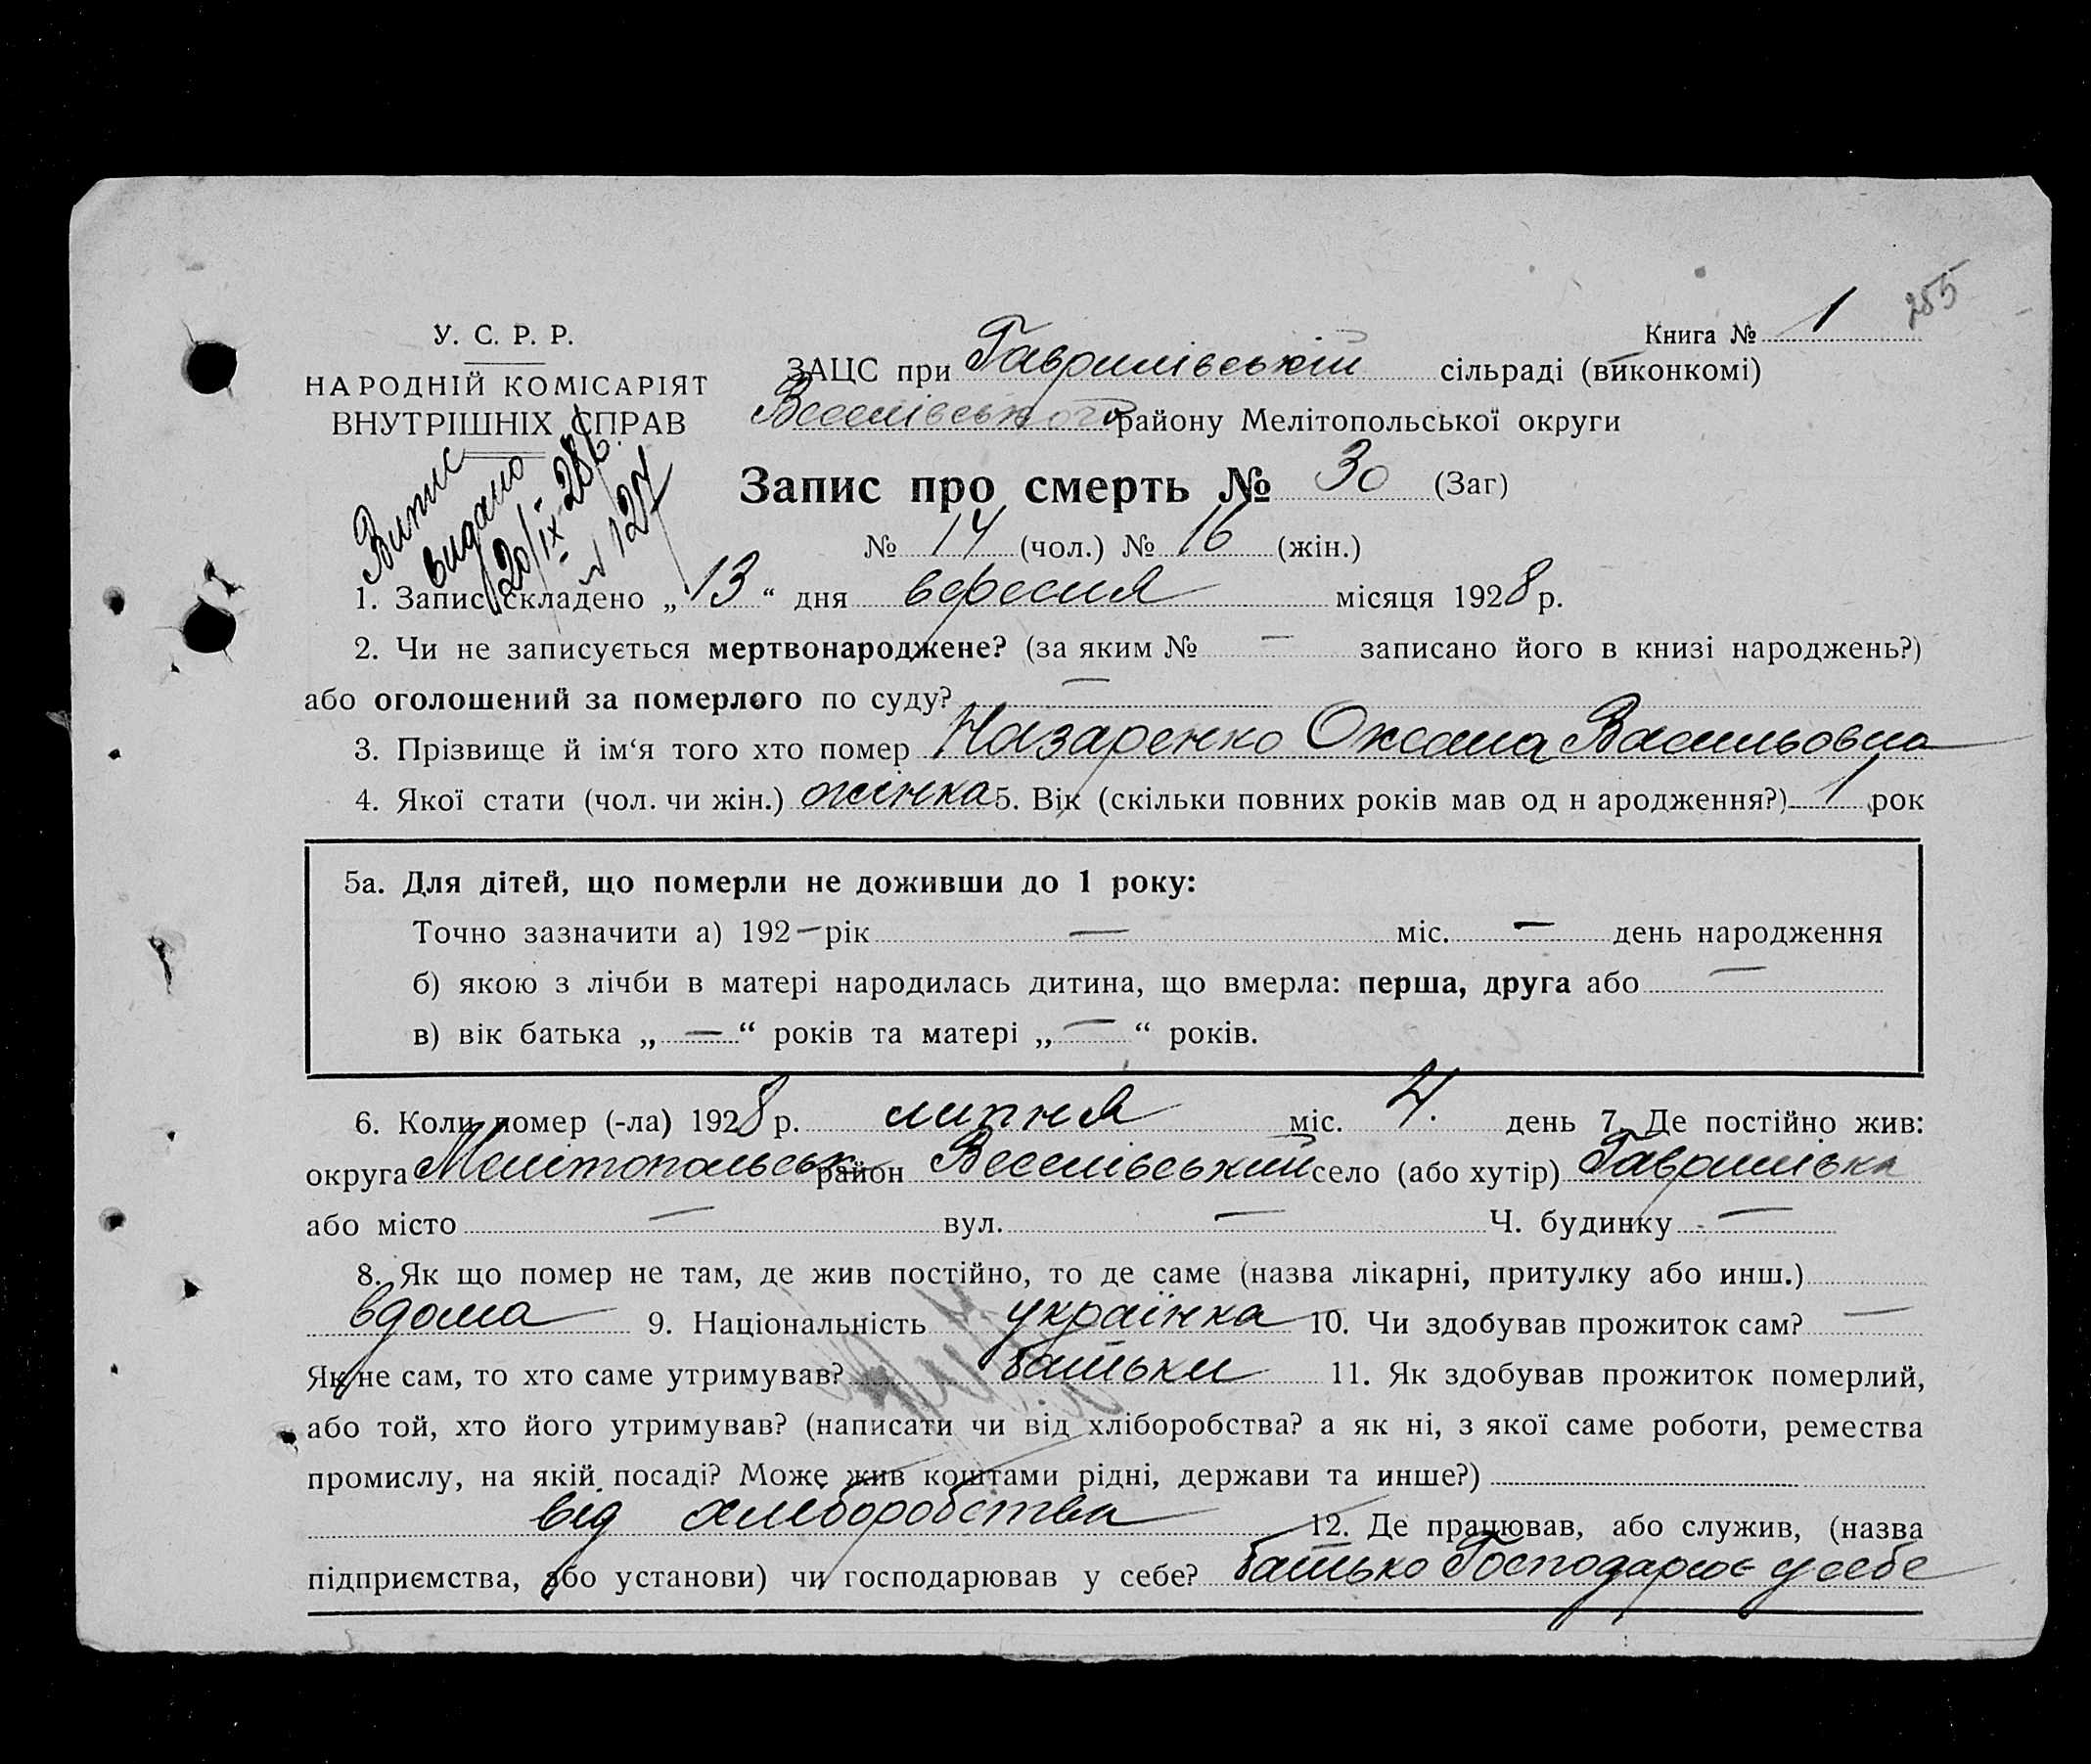 255
Книга № 1
У. С. Р. Р.
НАРОДНІЙ КОМІСАРІЯТ
ВНУТРІШНІХ СПРАВ
ЗАЦС при Гаврилівській сільраді (виконкомі)
Веселівського району Мелітопольської округи
Випис
видано
20/ІХ-28р.
№ 127
Запис про смерть № 30 (Заг)
№ 14 (чол.) № 16 (жін.)
1. Запис складено „13“ дня вересня місяця 1928 р.
2. Чи не записується мертвонароджене? (за яким № — записано його в книзі народжень?)
або оголошений за померлого по суду? —
3. Прізвище й ім‘я того хто помер Назаренко Оксана Васильовна
4. Якої стати (чол. чи жін.) жінка 5. Вік (скільки повних років мав од н ародження?) 1 рок
5а. Для дітей, що померли не доживши до 1 року:
Точно зазначити а) 192— рік — міс. — день народження
б) якою з лічби в матері народилась дитина, що вмерла: перша, друга або —
в) вік батька „—“ років та матері „—“ років.
6. Коли помер (-ла) 1928 р. липня міс. 4. день 7. Де постійно жив:
округа Мелітопольськ район Веселівський село (або хутір) Гаврилівка
або місто — вул. — Ч. будинку —
8. Як що помер не там, де жив постійно, то де саме (назва лікарні, притулку або инш.)
вдома 9. Національність українка 10. Чи здобував прожиток сам? —
Як не сам, то хто саме утримував? батьки 11. Як здобував прожиток померлий,
або той, хто його утримував? (написати чи від хліборобства? а як ні, з якої саме роботи, ремества
промислу, на якій посаді? Може жив коштами рідні, держави та инше?)
від хліборобства 12. Де працював, або служив, (назва
підприємства, або установи) чи господарював у себе? батько Господарює у себе